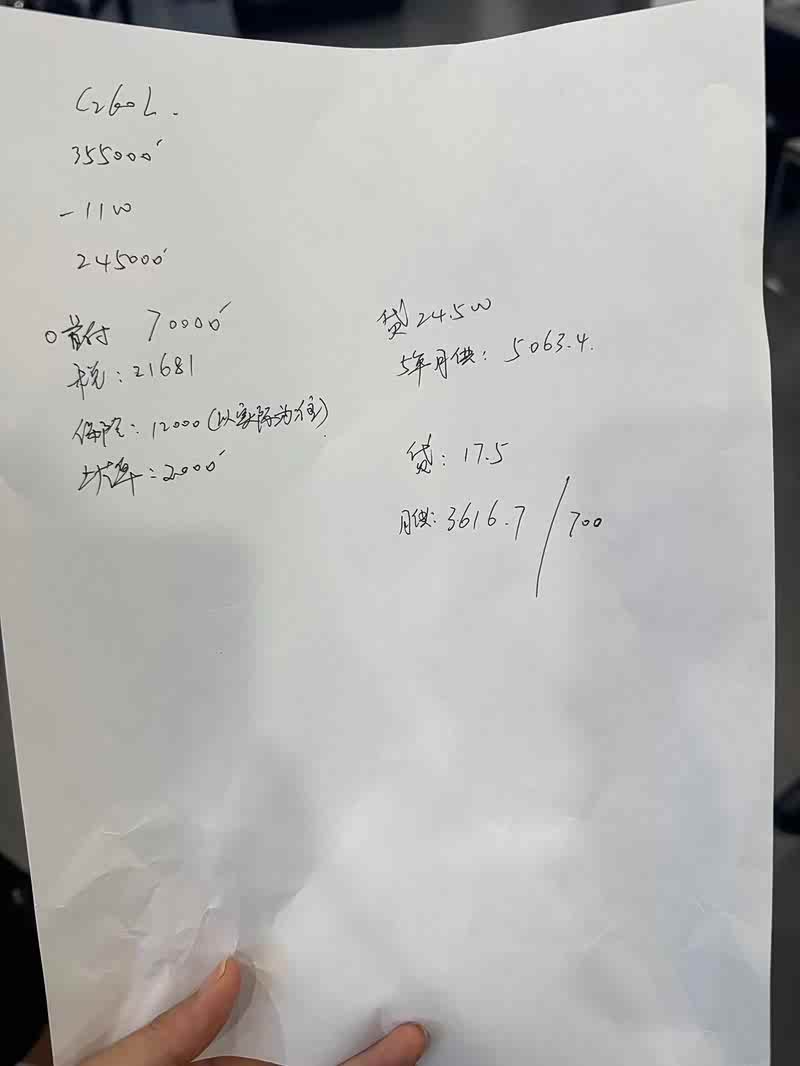 C260L.
355000
-11W
245000
0首付 70000
税:21681
保险:12000(以实际为准)
上牌:2000
贷24.5W
5年月供:5063.4.
贷:17.5
月供:3616.7/700